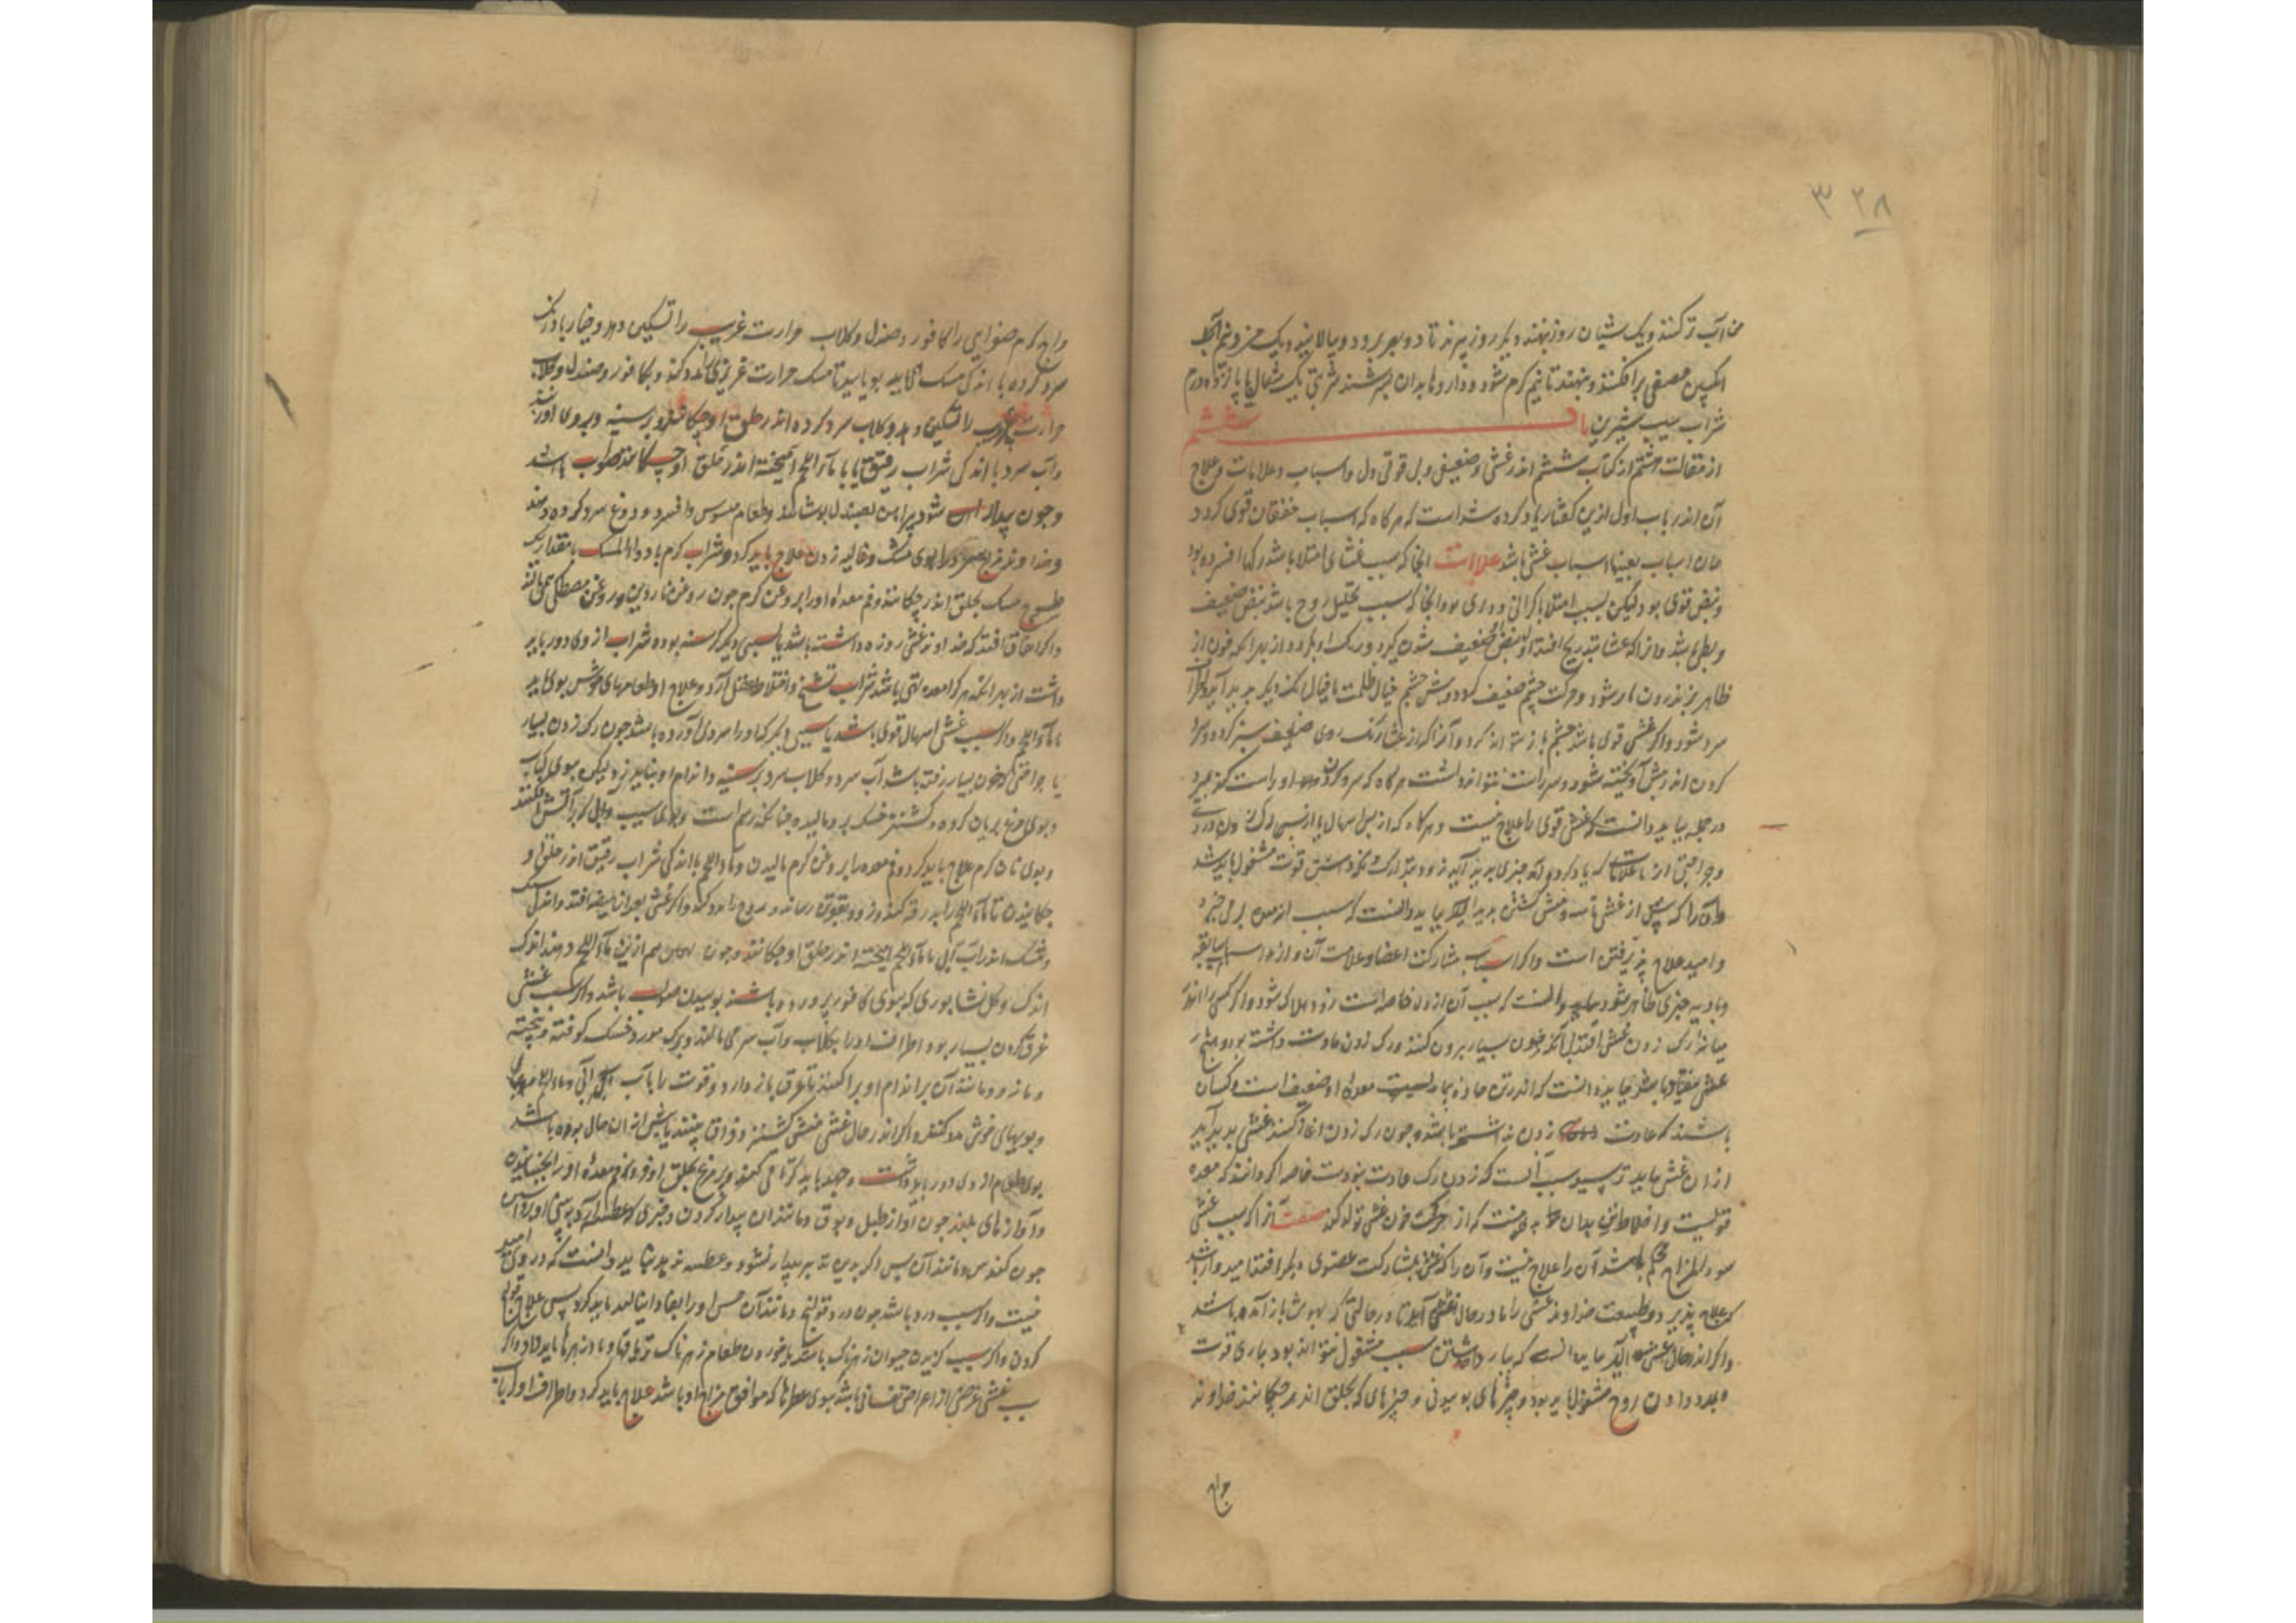 ۳۲۸
من آب تر کنند و یک شبان روز بنهند و دیگر روز بپزند تا دو بهر برود و بپالایند و یک جزو نیم آنگه
انگبین مصفی برافکنند و بنهند تا نیم گرم شود و داروها بدان بسرشند شربتی یک مثقال با پانزده درم
شراب سیب شیرین باب ششم
از مقالت هشتم از کتاب ششم اندر غشی و ضعیفی و بی قوتی دل و اسباب و علامات و علاج
آن اندر باب اول ازین گفتار یاد کرده شده است که هرگاه که اسباب خفقان قوی گردد
همان اسباب بعینها اسباب غشی باشد علامات آنجا که سبب غشی امتلا باشد رگها افسرده بود
و نبض قوی بود ولیکن بسبب امتلا با گرانی و دیری بود و آنجا که سبب تحلیل روح باشد نبض ضعیف
و بطی باشد و از آنکه غشی بتدریج افتد اول نبض ضعیف شدن گیرد و رنگ او بگردد از بهر آنکه خون از
ظاهر بز اندرون باز شود و حرکت چشم ضعیف گردد و پیش چشم خیال ظلمت یا خیال رنگ دیگر پدید آید و اطراف
سرد شود و اگر غشی قوی باشد چشم باز نتواند کرد و آنرا که از غشی رنگ روی سبز گردد و سر
گردن اندر پیش آویخته شود و سر راست نتواند داشت هرگاه که سر و گردن او راست کنند بمیرد
در جمله بباید دانست که غشی قوی را علاج نیست و هرگاه که از پس اسهال یا از پس رگ زدن و درد
و جراحتی از علامات که یاد کردیم چیزی پدید آید زود بتدارک و نگه داشتن قوت مشغول باید شد
و آن را که پیش از غشی تاسه و منش گشتن پدید آید بباید دانست که سبب از معده بر می خیزد
و امید علاج پذیرفتن است و اگر اسباب مشارکت اعضا و علامت آن و از اسباب سابقه
و بادیه چیزی ظاهر نشود بباید دانست که سبب آن از دل خاصه است زود هلاک شود و اگر کسی را اندر
میانه رگ زدن غشی افتد بی آنکه خون بسیار بیرون کنند و رگ زدن عادت داشته بود و هرگز
غشی نیفتاده باشد بباید دانست که اندر تن ماده بیماریست معده او ضعیف است و کسان
باشند که عادت رگ زدن نداشته باشند و چون رگ زدن آغاز کنند غشی پدید آید
از آن غشی نباید ترسید سبب آنست که زدن رگ عادت نبودست خاصه اگر دانند که معده
قویست و اخلاط تن بدان بد نیست که از حرکت خون غشی تولد کند صفت آنرا که سبب غشی
سوء المزاج محکم باشد آن را علاج نیست و آن را که غشی بمشارکت عضوی دیگر افتد امیدوار باشد
که علاج پذیرد و طبیعت خداوند غشی را یا در حال غشی آید یا در حالتی که بهوش باز آمده باشد
و اگر اندر حال غشی آید بباید دانست که بباز داشتن سبب مشغول نتواند بود بیاری قوت
و مدد دادن روح مشغول باید بود و چیزهای بوییدنی و چیزهای که بحلق اندر چکانند خداوند
مزاج
مزاج گرم صفرایی را کافور و صندل و گلاب حرارت غریب را تسکین دهد و خیار بادرنگ
سرد کرده با اندکی مسک باید بویانید تا مسک حرارت غریزی را مدد کند و کافور و صندل و گلاب
حرارت غریب را تسکین دهد و گلاب سرد کرده اندر حلق او چکانند و بر سینه و بر روی او زنند
و آب سرد با اندکی شراب رقیق یا با ماء اللحم آمیخته اندر حلق او چکانند صواب باشد
و چون بیدار شود پیراهن بصندل بپوشانند و طعام مسوس و افسرد و دوغ سرد کرده دهند
و خداوند مزاج سرد را ببوی مشک و غالیه زدن علاج باید کرد و شراب گرم با دواء المسک بمقدار یک
طسوج مسک بحلق اندر چکانند و فم معده او را بروغن گرم چون روغن ناردین و روغن مصطکی می مالند
و اگر اتفاق افتد که خداوند غشی روزه داشته باشد یا بسببی دیگر گرسنه بوده شراب از وی دور باید
داشت از بهر آنکه هر که را معده تهی باشد شراب تشنج و اختلاط عقل آرد و علاج او طعامهای خوش بوی باید
یا ماء اللحم و اگر سبب غشی اسهال قوی باشد یا سببی دیگر که او را سردی آورده باشد چون رگ زدن بسیار
یا جراحتی که خون بسیار رفته باشد آب سرد و گلاب سرد بر سینه و اندام او نباید زد لیکن ببوی کباب
و بوی مرغ بریان کرده و گشنیز خشک بر و مالیده چنانکه رسم است و بوی سیب و بل که بر آتش افکنند
و بوی نان گرم علاج باید کرد و فم معده را بروغن گرم مالیدن و ماء اللحم با اندکی شراب رقیق اندر حلق او
چکانیدن تا ماء اللحم را بدرقه کند و زود بقوت رساند و روح را مدد کند و اگر غشی بعد از هیضه افتد و اندک
و مشک اندر آب آبی با ماء اللحم آمیخته اندر حلق او چکانند و چون بهتر شود هم ازین ماء اللحم دهند اندک
اندک و گل نشابوری که ببوی کافور پرورده باشند بوییدن صواب باشد و اگر سبب غشی
عرق کردن بسیار بود اطراف او را بگلاب و آب سرد می مالند و برگ مورد خشک کوفته و بیخته
و مازو و مانند آن بر اندام او پراکنند تا عرق باز دارد و قوت را با آب آبی و ماء اللحم
و بویهای خوش مدد کنند و اگر اندر حال غشی منش گشتن و فواق بینند یا پیش از آن حال بوده باشد
بوی طعام از وی دور باید داشت و جهد باید کرد تا قی کند و پر مرغ بحلق او فرو کنند و فم معده او را بجنبانند
و آوازهای بلند چون آواز طبل و بوق و مانند آن بیدار کردن و چیزی که عطسه آرد به بینی او برند
چون کندس و مانند آن پس اگر بدین تدبیر بیدار نشود و عطسه ندهد بباید دانست که در وی امید
نیست و اگر سبب درد باشد چون درد قولنج و مانند آن علاج قولنج
کردن و اگر سبب گزیدن حیوان زهرناک باشد یا خوردن طعام زهرناک تریاقها و پادزهرها باید داد و اگر
سبب غشی عرضی از اعراض نفسانی باشد ببوی عطرها که موافق مزاج او باشد علاج باید کرد و اطراف او را باب